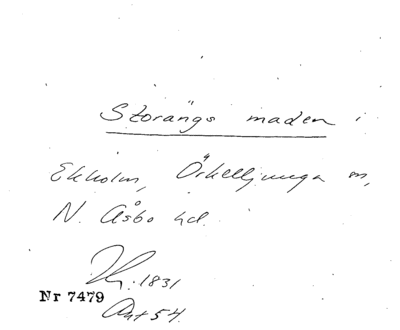 Storängs maden i
Ekholm, Örkelljunga sn,
N. Åsbo hd.
1831
Nr 7479
Ant 54.